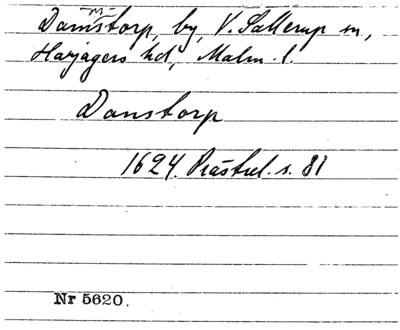 Damstorp, by, V. Sallerup sn,
Harjagers hd, Malm. l.
Danstorp
1624. Prästrel. s. 81
Nr 5620.